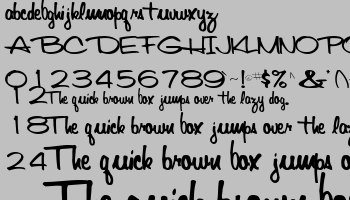 abcdefghijklmnopqrstuvwxyz
ABCDEFGHIJKLMNOPQ
0123456789 ~!@#$%^&*()
12 The quick brown box jumps over the lazy dog.
18 The quick brown box jumps over the laz
24 The quick brown box jumps o
The quick brown bo